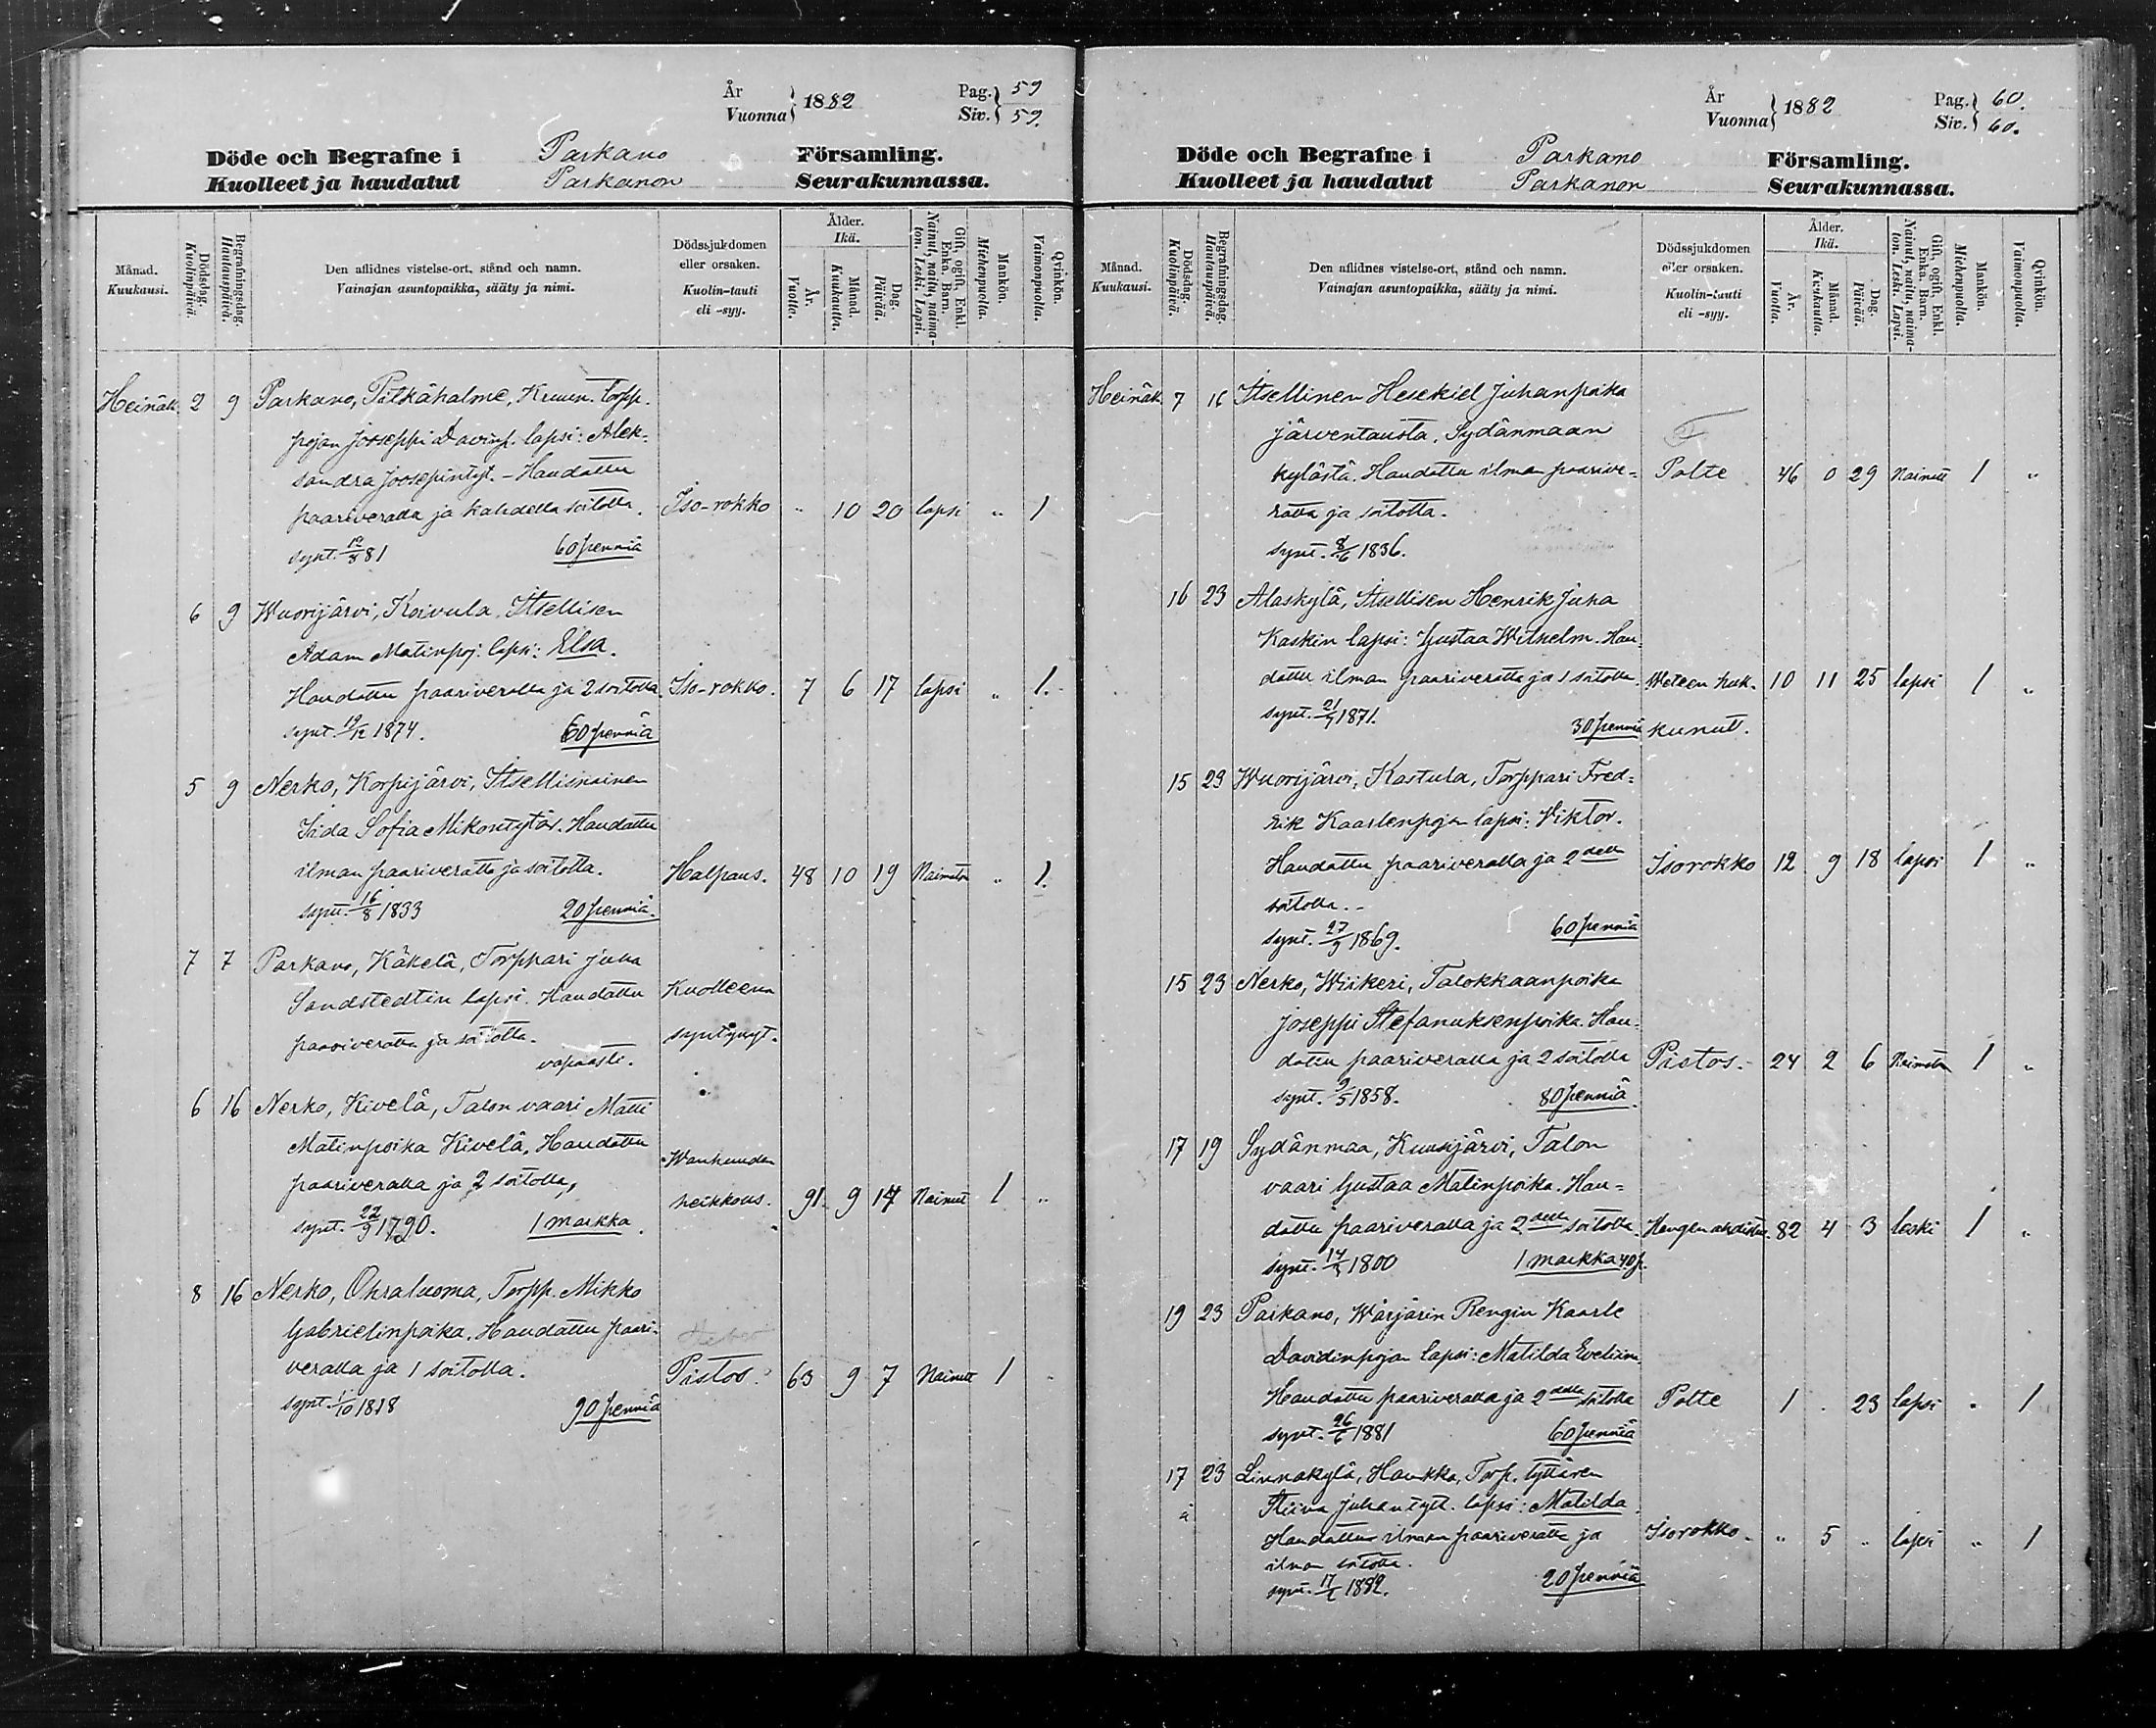 År
Vuonna } 1882
Pag. } 59
Siv. } 59.
Döde och Begrafne i Parkano Församling.
Kuolleet ja haudatut Parkanon Seurakunnassa.
Månad. Kuukausi.
Dödsdag. Kuolinpäivä.
Begrafningsdag. Hautauspäivä.
Den aflidnes vistelse-ort, stånd och namn.
Vainajan asuntopaikka, sääty ja nimi.
Dödssjukdomen
eller orsaken.
Kuolin-tauti
eli -syy.
Ålder.
Ikä.
År. Vuotta.
Månad. Kuukautta.
Dag. Päivää.
Gift, ogift, Enkl. Enka. Barn. Nainut, naitu, naimaton. Leski. Lapsi.
Mankön. Miehenpuolia.
Qvinkön. Vaimonpuolia.
Heinäk. 2 9 Parkano, Pitkähalme, Kruun. torpp.
pojan Joseppi Davinp. lapsi: Alek-
sandra Joosepintyt. - Haudattu
paariveralla ja kahdella soitolla. Iso-rokko " 10 20 lapsi " 1
synt. 12/8 81 60 penniä
6 9 Wuorijärvi, Koivula, Itsellisen
Adam Matinpoj. lapsi: Elsa.
Haudattu paariveralla ja 2 soitolla Iso-rokko. 7 6 17 lapsi " 1.
synt. 19/12 1874. 60 penniä
5 9 Nerko, Korpijärvi, Itsellisnainen
Iida Sofia Mikontytär. Haudattu
ilman paariveratta ja soitotta. Halpaus. 48 10 19 Naimaton " 1.
synt. 16/8 1833 20 penniä.
7 7 Parkano, Käkelä, Torppari Juha
Sandstedtin lapsi. Haudattu Kuolleena
paariveratta ja soitotta. syntynyt.
vapaasti.
6 16 Nerko, Kivelä, Talon vaari Matti
Matinpoika Kivelä, Haudattu Wanhuuden
paariveralla ja 2 soitolla, heikkous. 91 9 14 Nainut 1 "
synt. 22/9 1790. 1 markka.
8 16 Nerko, Ohraluoma, Torpp. Mikko
Gabrielinpoika. Haudattu paari-
veralla ja 1 soitolla. Pistos. 63 9 7 Nainut 1
synt. 1/10 1818 90 penniä
År
Vuonna } 1882
Pag. } 60.
Siv. } 60.
Döde och Begrafne i Parkano Församling.
Kuolleet ja haudatut Parkanon Seurakunnassa.
Månad. Kuukausi.
Dödsdag. Kuolinpäivä.
Begrafningsdag. Hautauspäivä.
Den aflidnes vistelse-ort, stånd och namn.
Vainajan asuntopaikka, sääty ja nimi.
Dödssjukdomen
eller orsaken.
Kuolin-tauti
eli -syy.
Ålder.
Ikä.
År. Vuotta.
Månad. Kuukautta.
Dag. Päivää.
Gift, ogift, Enkl. Enka. Barn. Nainut, naitu, naimaton. Leski. Lapsi.
Mankön. Miehenpuolia.
Qvinkön. Vaimonpuolia.
Heinäk. 7 16 Itsellinen Hesekiel Juhanpoika
Järventausta, Sydänmaan
kylästä. Haudattu ilman paarive- Polte 46 0 29 Nainut 1 "
ratta ja soitotta.
synt. 8/6 1836.
16 23 Alaskylä, Itsellisen Henrik Juha
Kaskin lapsi: Gustaa Wilhelm. Hau-
dattu ilman paariveratta ja 1 soitolla. Weteen huk- 10 11 25 lapsi 1 "
synt. 21/7 1871. 30 penniä kunut.
15 23 Wuorijärvi, Kastula, Torppari Fred-
rik Kaarlenpojan lapsi: Viktor.
Haudattu paariveralla ja 2della Isorokko 12 9 18 lapsi 1 "
soitolla.-
synt. 27/9 1869. 60 penniä
15 23 Nerko, Wiikeri, Talokkaanpoika
Joseppi Stefanuksenpoika. Hau-
dattu paariveralla ja 2 soitolla Pistos. 24 2 6 Naimaton 1 "
synt. 9/5 1858. 80 penniä.
17 19 Sydänmaa, Kuusijärvi, Talon
vaari Gustaa Matinpoika. Hau-
dattu paariveralla ja 2della soitolla. Hengen ahdistus. 82 4 3 leski 1 "
synt. 14/3 1800 1 markka 40 p.
19 23 Parkano, Wärjärin Rengin Kaarle
Davidinpojan lapsi: Matilda Eveliina.
Haudattu paariveralla ja 2della soitolla Polte 1 . 23 lapsi " 1
synt. 26/6 1881 60 penniä
17 23 Linnakylä, Haukka, Torp. tyttären
Stiina Juhantyt. lapsi: Matilda.
Haudattu ilman paariveratta ja Isorokko. " 5 " lapsi " 1
ilman soitotta.
synt. 17/2 1882. 20 penniä